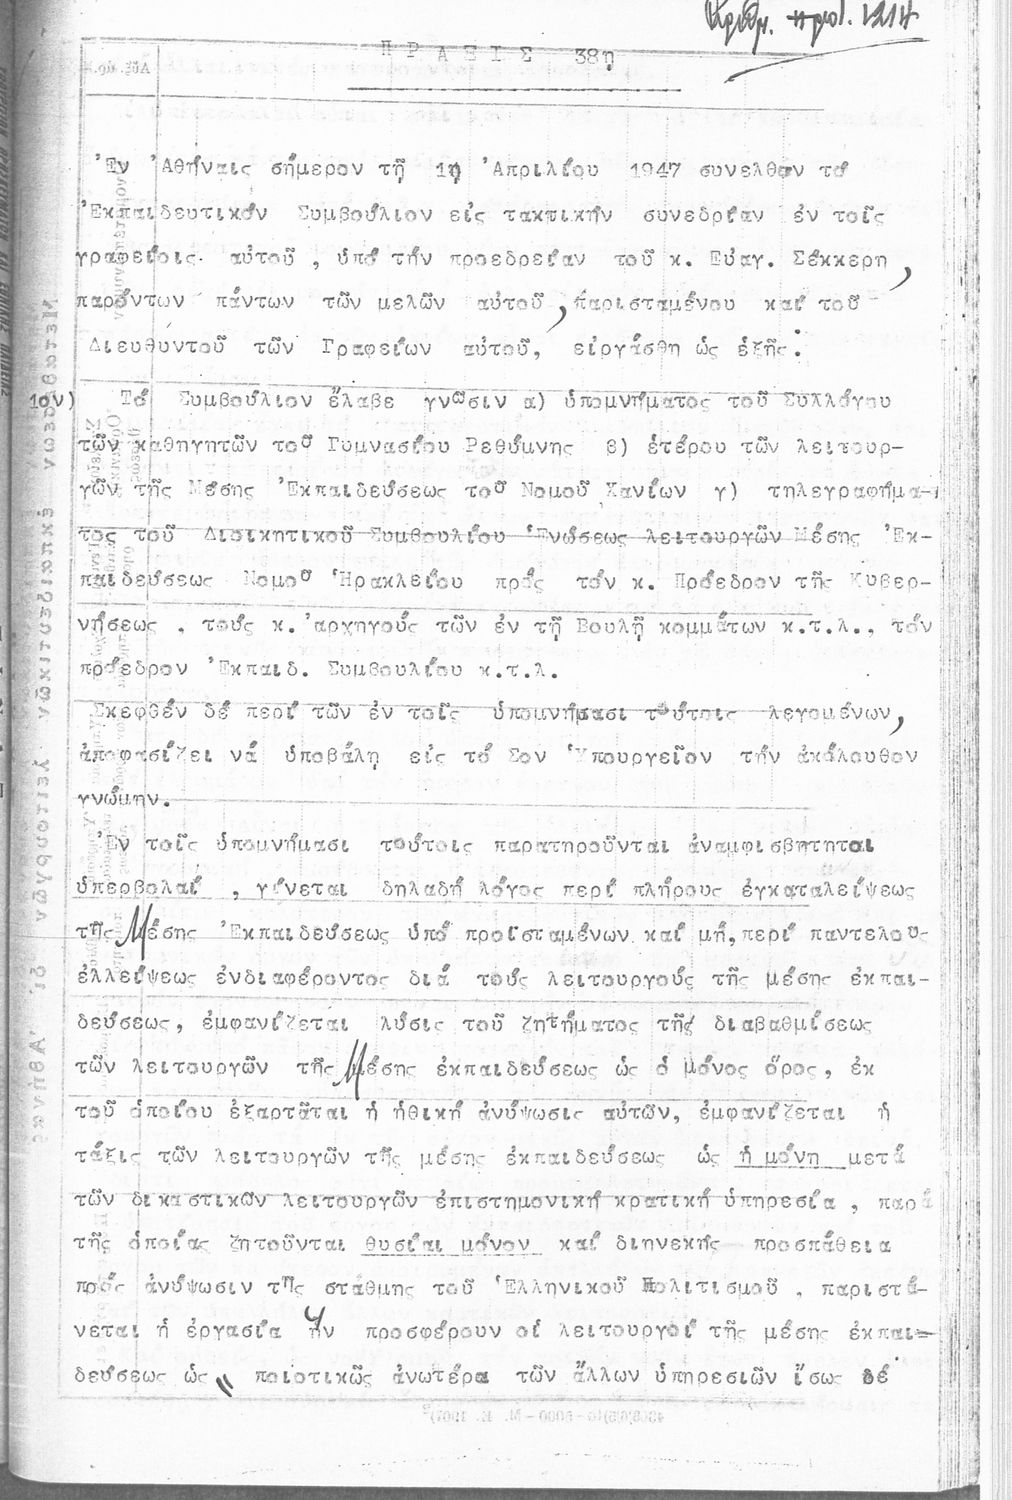 Ἀριθμ. πρωτ. 1214
ΠΡΑΞΙΣ 38η
Ἐν Ἀθήναις σήμερον τῇ 1ῃ Ἀπριλίου 1947 συνελθὸν τό
Ἐκπαιδευτικόν Συμβούλιον εἰς τακτικήν συνεδρίαν ἐν τοῖς
γραφείοις αὐτοῦ , ὑπό τήν προεδρείαν τοῦ κ. Εὐαγ. Σέκκερη ,
παρόντων πάντων τῶν μελῶν αὐτοῦ , παρισταμένου καί τοῦ
Διευθύντοῦ τῶν Γραφείων αὐτοῦ, εἰργάσθη ὡς ἑξῆς:
1ον) Τό Συμβούλιον ἔλαβε γνῶσιν α) ὑπομνήματος τοῦ Συλλόγου
τῶν καθηγητῶν τοῦ Γυμνασίου Ρεθύμνης β) ἑτέρου τῶν λειτουρ-
γῶν τῆς Μέσης Ἐκπαιδεύσεως τοῦ Νομοῦ Χανίων γ) τηλεγραφήμα-
τος τοῦ Διοικητικοῦ Συμβουλίου Ἑνώσεως λειτουργῶν Μέσης Ἐκ-
παιδεύσεως Νομοῦ Ἡρακλείου πρός τόν κ. Πρόεδρον τῆς Κυβερ-
νήσεως , τούς κ. ἀρχηγούς τῶν ἐν τῇ Βουλῇ κομμάτων κ.τ.λ., τόν
πρόεδρον Ἐκπαιδ. Συμβουλίου κ.τ.λ.
Σκεφθέν δέ περί τῶν ἐν τοῖς ὑπομνήμασι τούτοις λεγομένων,
ἀποφασίζει νά ὑποβάλη εἰς τό Σον Ὑπουργεῖον τήν ἀκόλουθον
γνώμην.
Ἐν τοῖς ὑπομνήμασι τούτοις παρατηροῦνται ἀναμφισβητηται
ὑπερβολαί , γίνεται δηλαδή λόγος περί πλήρους ἐγκαταλείψεως
τῆς Μέσης Ἐκπαιδεύσεως ὑπό προϊσταμένων καί μή, περί παντελοῦς
ἐλλείψεως ἐνδιαφέροντος διά τούς λειτουργούς τῆς μέσης ἐκπαι-
δεύσεως, ἐμφανίζεται λύσις τοῦ ζητήματος τῆς διαβαθμίσεως
τῶν λειτουργῶν τῆς Μέσης ἐκπαιδεύσεως ὡς ὁ μόνος ὅρος, ἐκ
τοῦ ὁποίου ἐξαρτᾶται ἡ ἠθική ἀνύψωσις αὐτῶν, ἐμφανίζεται ἡ
τάξις τῶν λειτουργῶν τῆς μέσης ἐκπαιδεύσεως ὡς ἡ μόνη μετά
τῶν δικαστικῶν λειτουργῶν ἐπιστημονική κρατική ὑπηρεσία , παρά
τῆς ὁποίας ζητοῦνται θυσίαι μόνον καί διηνεκής προσπάθεια
πρός ἀνύψωσιν τῆς στάθμης τοῦ Ἑλληνικοῦ Πολιτισμοῦ , παριστά-
νεται ἡ ἐργασία ἥν προσφέρουν οἱ λειτουργοί τῆς μέσης ἐκπαι-
δεύσεως ὡς " ποιοτικῶς ἀνωτέρα τῶν ἄλλων ὑπηρεσιῶν ἴσως δέ